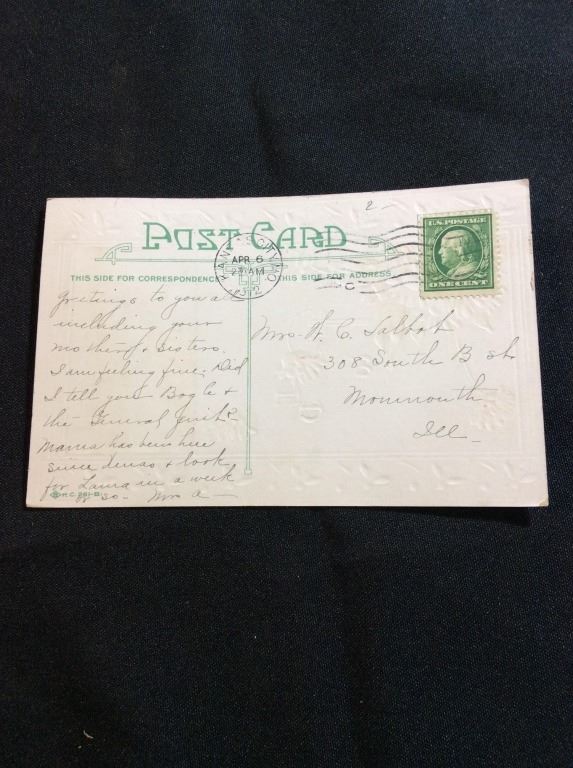 2
U.S. POSTAGE
ONE CENT
POST CARD
APR. 6
AM
THIS SIDE FOR CORRESPONDENCE
THIS SIDE FOR ADDRESS
C
Greetings to you all
including your
mother & sisters.
I am feeling fine. Did
I tell you Bogle &
the General
Mama has been here
since & look
for Laura in a week
or so - Mrs a -
Mrs. W. C. Talbot
308 South B st
Monmouth
Ill -